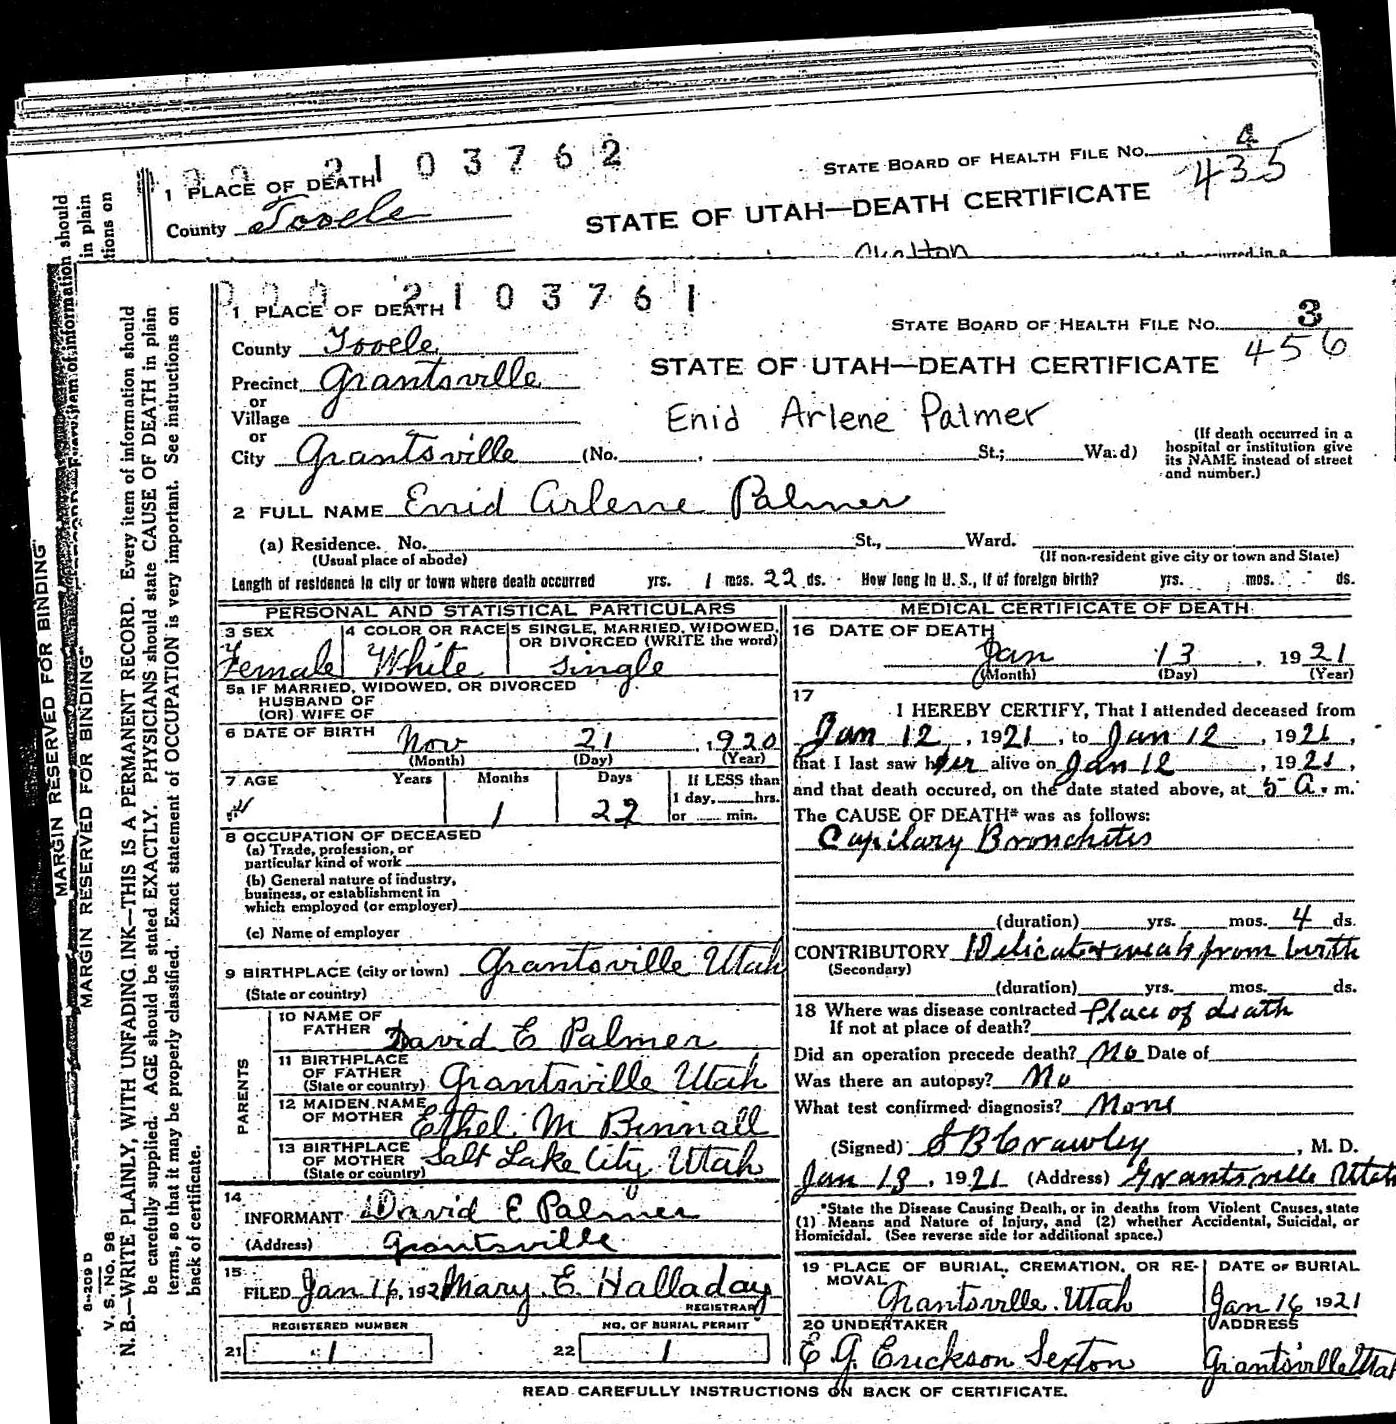 2103762
STATE BOARD OF HEALTH FILE NO. 4
435
1 PLACE OF DEATH
County Tooele
STATE OF UTAH—DEATH CERTIFICATE
000 2103761
1 PLACE OF DEATH
STATE BOARD OF HEALTH FILE NO. 3
456
County Tooele
STATE OF UTAH—DEATH CERTIFICATE
Precinct Grantsville
or
Village
Enid Arlene Palmer
or
City Grantsville (No. , St.; Ward)
(If death occurred in a hospital or institution give its NAME instead of street and number.)
2 FULL NAME Enid Arlene Palmer
(a) Residence. No. St., Ward.
(Usual place of abode) (If non-resident give city or town and State)
Length of residence in city or town where death occurred yrs. 1 mos. 22 ds. How long in U. S., if of foreign birth? yrs. mos. ds.
PERSONAL AND STATISTICAL PARTICULARS
3 SEX
Female
4 COLOR OR RACE
White
5 SINGLE, MARRIED, WIDOWED, OR DIVORCED (WRITE the word)
Single
5a IF MARRIED, WIDOWED, OR DIVORCED
HUSBAND OF
(OR) WIFE OF
6 DATE OF BIRTH Nov 21, 1920
(Month) (Day) (Year)
7 AGE Years Months Days If LESS than
1 22 1 day, hrs.
or min.
8 OCCUPATION OF DECEASED
(a) Trade, profession, or
particular kind of work
(b) General nature of industry,
business, or establishment in
which employed (or employer)
(c) Name of employer
9 BIRTHPLACE (city or town) Grantsville Utah
(State or country)
PARENTS
10 NAME OF
FATHER David E Palmer
11 BIRTHPLACE
OF FATHER
(State or country) Grantsville Utah
12 MAIDEN NAME
OF MOTHER Ethel M Binnall
13 BIRTHPLACE
OF MOTHER
(State or country) Salt Lake City, Utah
14
INFORMANT David E Palmer
(Address) Grantsville
15
FILED Jan 16, 192 Mary E. Halladay
REGISTRAR
REGISTERED NUMBER NO. OF BURIAL PERMIT
21 1 22 1
MEDICAL CERTIFICATE OF DEATH
16 DATE OF DEATH
Jan 13, 1921
(Month) (Day) (Year)
17
I HEREBY CERTIFY, That I attended deceased from
Jan 12, 1921, to Jan 12, 1921,
that I last saw her alive on Jan 12, 1921,
and that death occured, on the date stated above, at 5 A. m.
The CAUSE OF DEATH* was as follows:
Capilary Bronchites
(duration) yrs. mos. 4 ds.
CONTRIBUTORY Delicate & weak from birth
(Secondary)
(duration) yrs. mos. ds.
18 Where was disease contracted Place of death
If not at place of death?
Did an operation precede death? No Date of
Was there an autopsy? No
What test confirmed diagnosis? None
(Signed) S B Crawley, M. D.
Jan 13, 1921 (Address) Grantsville Utah
*State the Disease Causing Death, or in deaths from Violent Causes, state
(1) Means and Nature of Injury, and (2) whether Accidental, Suicidal, or
Homicidal. (See reverse side for additional space.)
19 PLACE OF BURIAL, CREMATION, OR REMOVAL
Grantsville Utah
DATE OF BURIAL
Jan 16 1921
20 UNDERTAKER
E G. Erickson Sexton
ADDRESS
Grantsville Utah
READ CAREFULLY INSTRUCTIONS ON BACK OF CERTIFICATE.
MARGIN RESERVED FOR BINDING
MARGIN RESERVED FOR BINDING
8-209 D
V. S. No. 98
N. B.—WRITE PLAINLY, WITH UNFADING INK—THIS IS A PERMANENT RECORD. Every item of information should
be carefully supplied. AGE should be stated EXACTLY. PHYSICIANS should state CAUSE OF DEATH in plain
terms, so that it may be properly classified. Exact statement of OCCUPATION is very important. See instructions on
back of certificate.